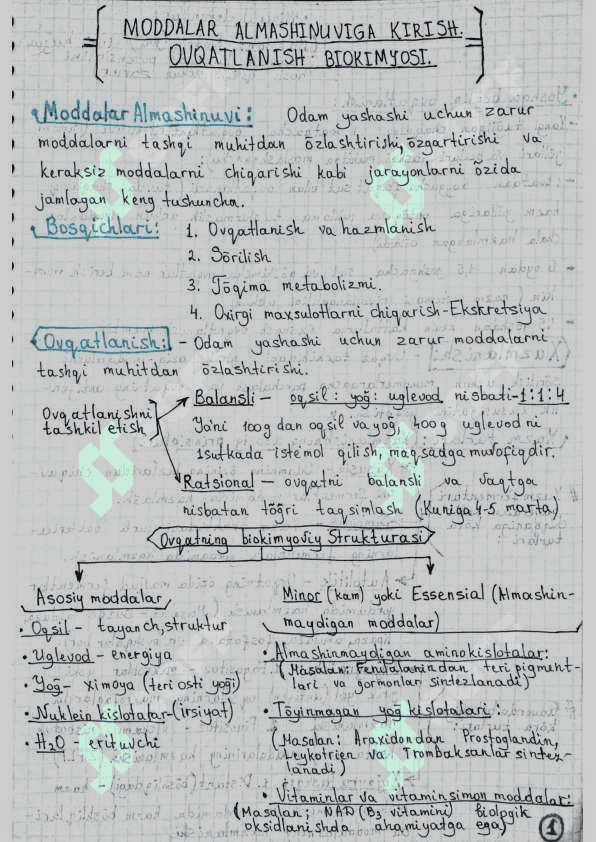 MODDALAR ALMASHINUVIGA KIRISH.
OVQATLANISH BIOKIMYOSI.
Moddalar Almashinuvi: Odam yashashi uchun zarur
moddalarni tashqi muhitdan õzlashtirishi, õzgartirishi va
keraksiz moddalarni chiqarishi kabi jarayonlarni õzida
jamlagan keng tushuncha.
Bosqichlari: 1. Ovqatlanish va hazmlanish
2. Sõrilish
3. Tõqima metabolizmi.
4. Oxirgi maxsulotlarni chiqarish-Ekskretsiya
Ovqatlanish: - Odam yashashi uchun zarur moddalarni
tashqi muhitdan õzlashtirishi.
Ovqatlanishni
tashkil etish
Balansli - oqsil : yog̃ : uglevod nisbati-1:1:4
Ya'ni 100g dan oqsil va yog̃, 400g uglevod ni
1sutkada istemol qilish, maqsadga muvofiqdir.
Ratsional - ovqatni balansli va vaqtga
nisbatan tõg̃ri taqsimlash (Kuniga 4-5 marta)
Ovqatning biokimyoviy Strukturasi
Asosiy moddalar
• Oqsil - tayanch, struktur
• Uglevod - energiya
• Yog̃ - ximoya (teri osti yog̃i)
• Nuklein kislotalar-(irsiyat)
• H₂O - erituvchi
Minor (kam) yoki Essensial (Almashin-
maydigan moddalar)
• Almashinmaydigan aminokislotalar:
(Masalan: Fenilalanindan teri pigment-
lari va gormonlar sintezlanadi)
• Tõyinmagan yog̃ kislotalari :
(Masalan: Araxidondan Prostoglandin,
Leykotrien va Trombaksanlar sintez-
lanadi)
• Vitaminlar va vitaminsimon moddalar:
(Masalan; NAD (B₃ vitamini) biologik
oksidlanishda ahamiyatga ega)
1